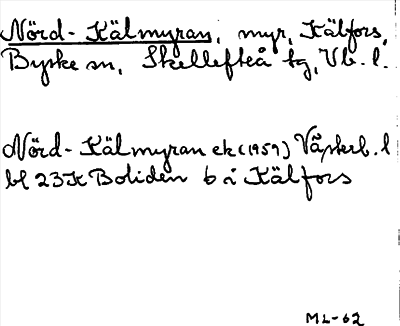 Nörd-Kälmyran, myr, Kälfors,
Byske sn, Skellefteå tg, Vb. l.
Nörd-Kälmyran ek (1959) Västerb. l
bl 23 K Boliden 6 i Kälfors
ML-62